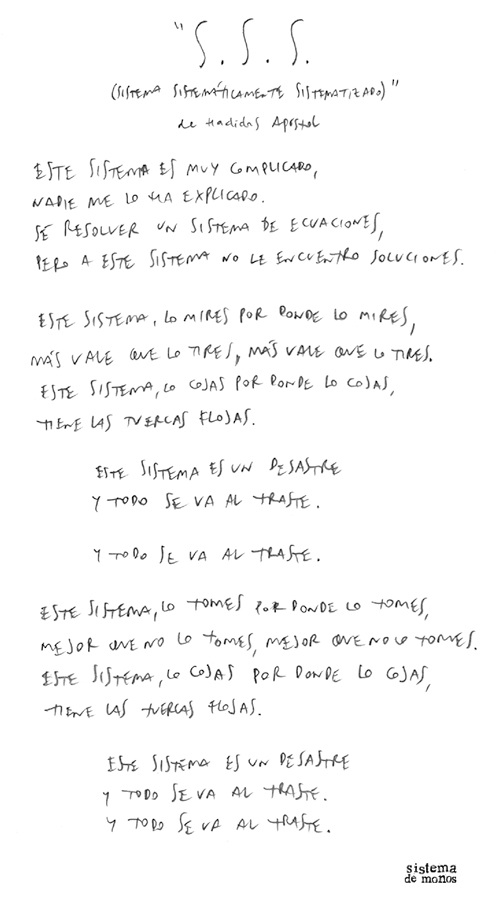 "S. S. S.
(SISTEMA SISTEMÁTICAMENTE SISTEMATIZADO)"
de Hadidas Apostol
ESTE SISTEMA ES MUY COMPLICADO,
NADIE ME LO HA EXPLICADO.
SÉ RESOLVER UN SISTEMA DE ECUACIONES,
PERO A ESTE SISTEMA NO LE ENCUENTRO SOLUCIONES.
ESTE SISTEMA, LO MIRES POR DONDE LO MIRES,
MÁS VALE QUE LO TIRES, MÁS VALE QUE LO TIRES.
ESTE SISTEMA, LO COJAS POR DONDE LO COJAS,
TIENE LAS TUERCAS FLOJAS.
ESTE SISTEMA ES UN DESASTRE
Y TODO SE VA AL TRASTE.
Y TODO SE VA AL TRASTE.
ESTE SISTEMA, LO TOMES POR DONDE LO TOMES,
MEJOR QUE NO LO TOMES, MEJOR QUE NO LO TOMES.
ESTE SISTEMA, LO COJAS POR DONDE LO COJAS,
TIENE LAS TUERCAS FLOJAS.
ESTE SISTEMA ES UN DESASTRE
Y TODO SE VA AL TRASTE.
Y TODO SE VA AL TRASTE.
sistema
de monos